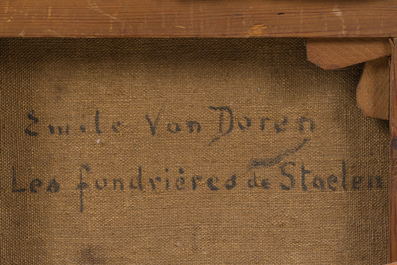 Emile Van Doren
Les fondrières de Staelen